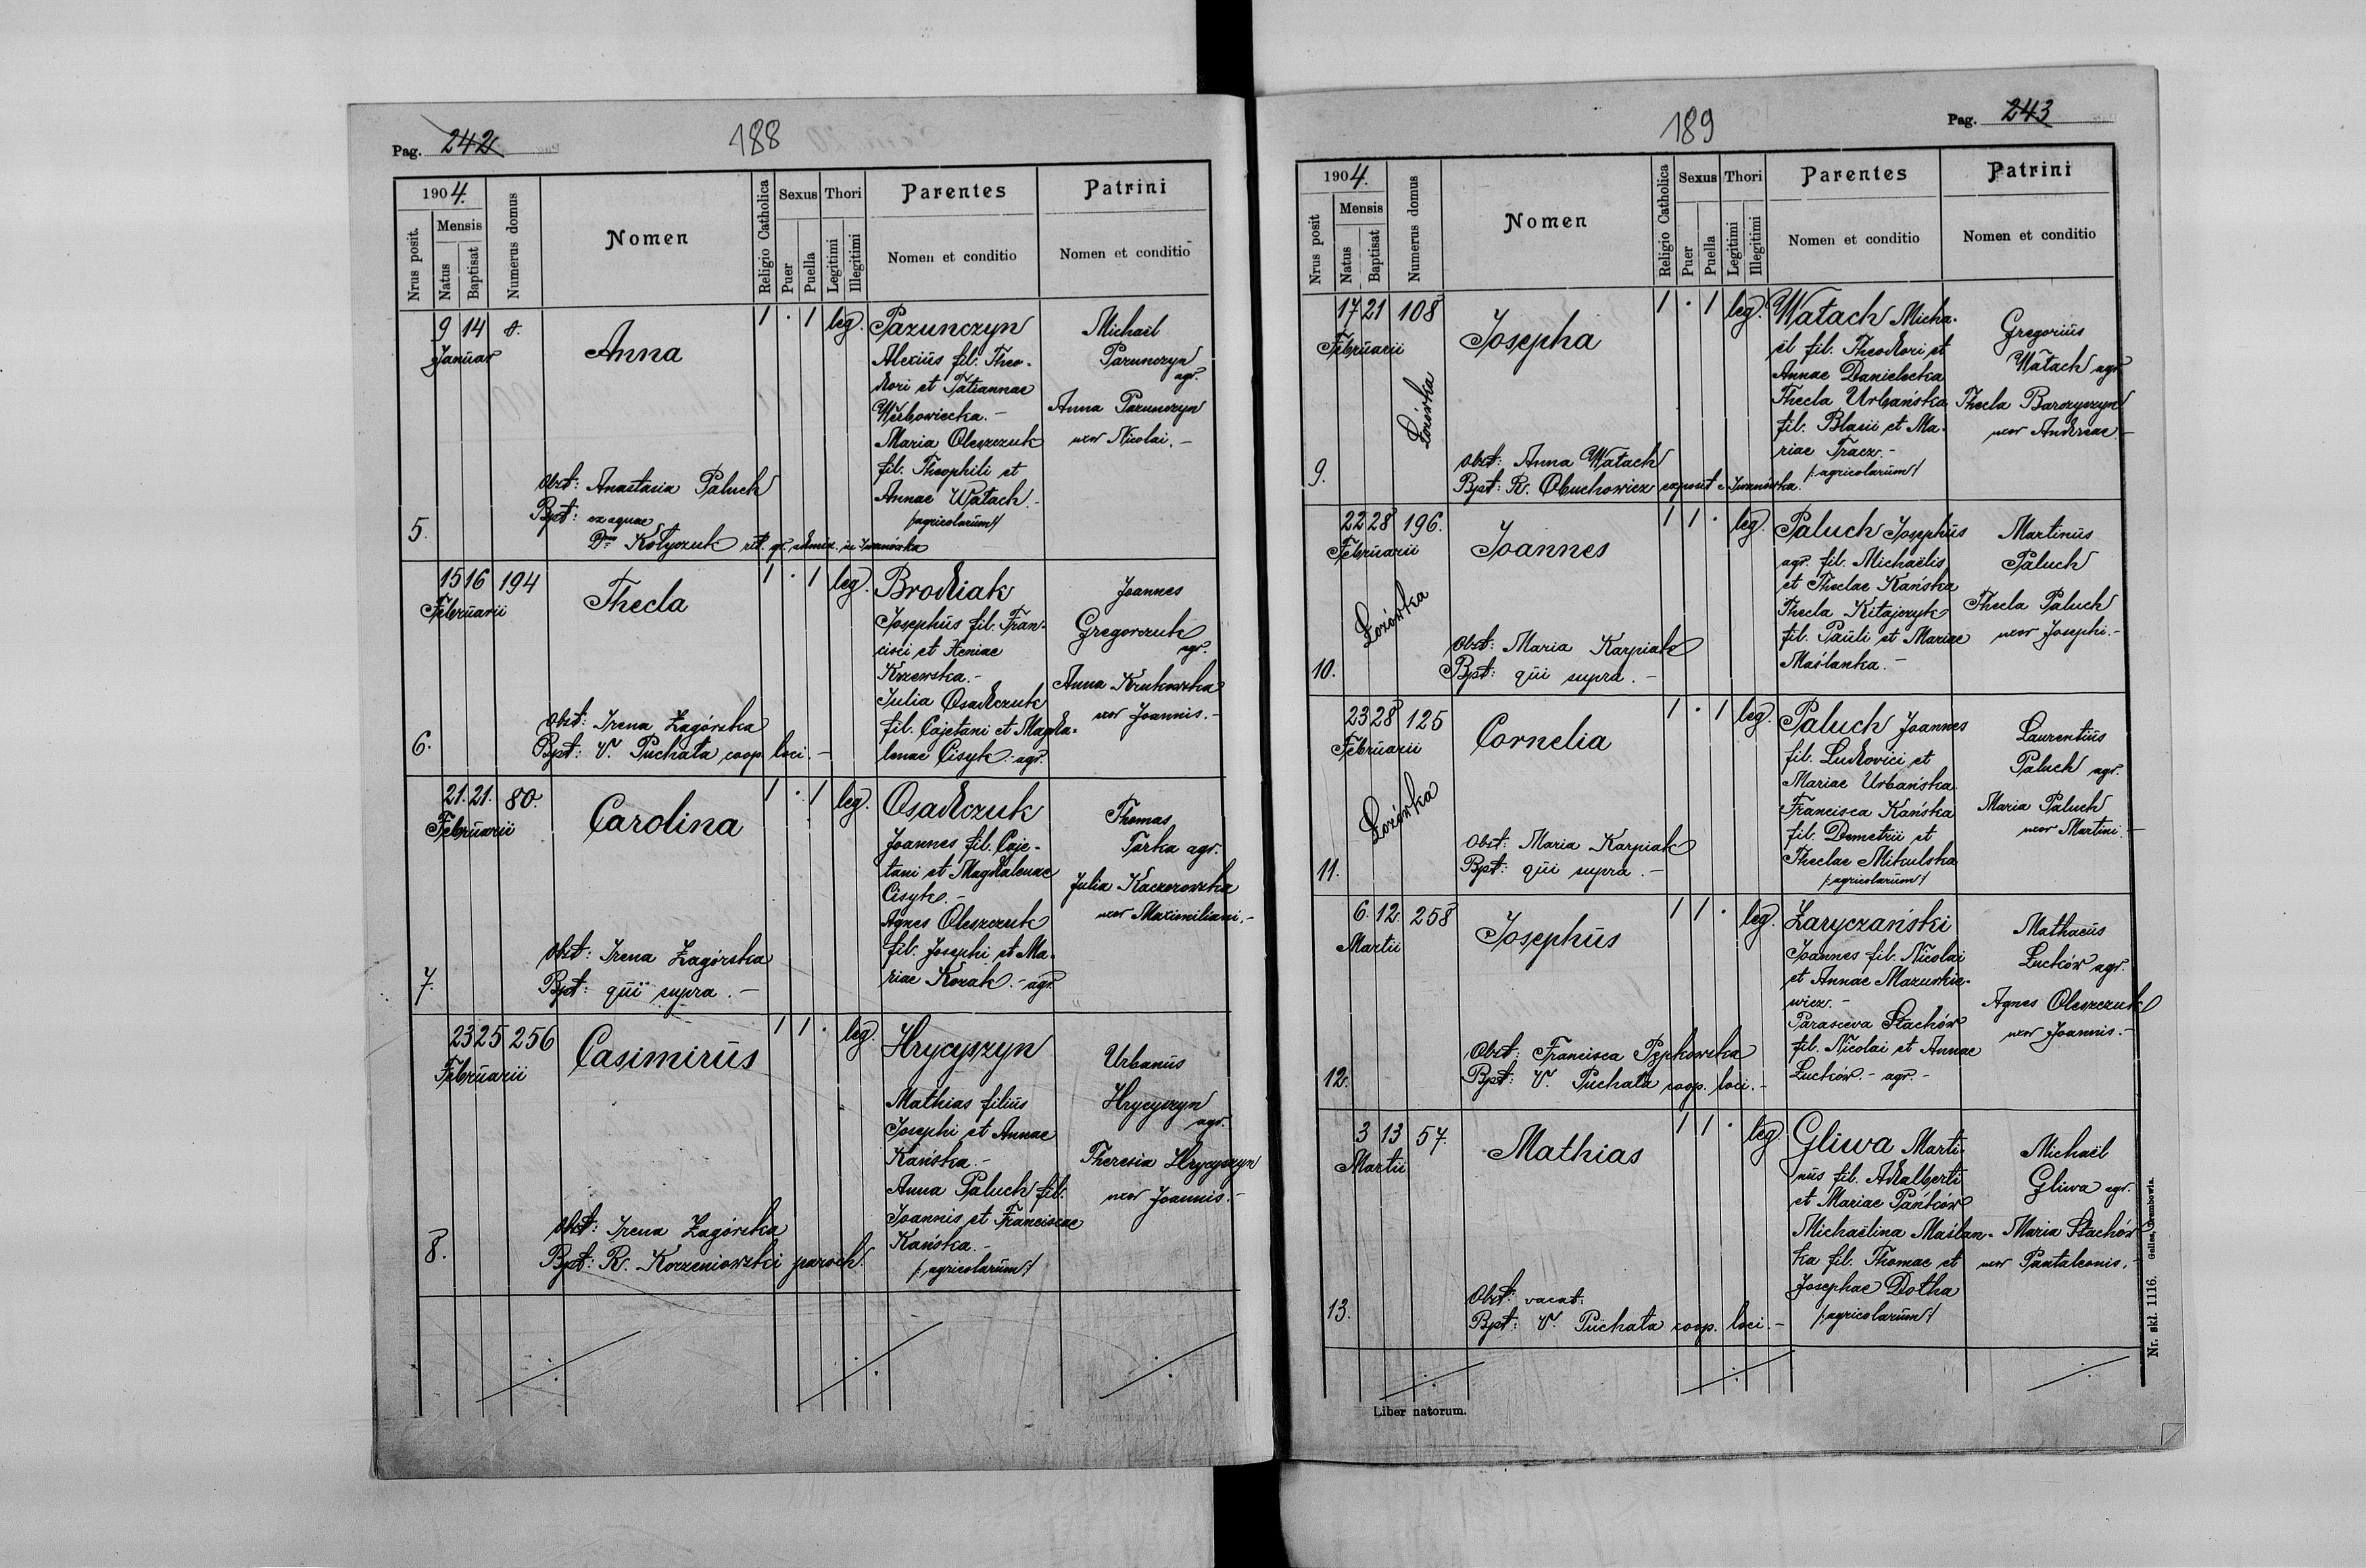 Pag. 242
188
1904.
Nrus posit.
Mensis
Natus
Baptisat
Numerus domus
Nomen
Religio Catholica
Sexus
Puer
Puella
Thori
Legitimi
Illegitimi
Parentes
Nomen et conditio
Patrini
Nomen et conditio
9 14
Januar
Anna
1 . 1 leg.
Pazunczyn
Alexius fil. Theo-
dori et Tatiannae
Werbowiecka.-
Maria Oleszczuk
fil. Theophili et
Annae Watach.-
/:agricolarum:/
Michaël
Pazunczyn
agr.
Anna Pazunczyn
uxor Nicolai.-
Obst: Anastasia Paluch
Bpt: ex aquae
Kotyczuk rit. gr. in Iwanówka
5.
15 16 194
Februarii
Thecla
1 . 1 leg.
Brodiak
Josephus fil. Fran-
cisci et Xeniae
Krzewska.-
Julia Osadczuk
fil. Cajetani et Magda-
lenae Cisyk.- agr.
Joannes
Gregorczuk
agr.
Anna Krukowska
uxor Joannis.-
Obst: Irena Zagórska
Bpt: V. Puchata coop. loci.-
6.
21. 21. 80.
Februarii
Carolina
1 . 1 leg.
Osadczuk
Joannes fil. Caje-
tani et Magdalenae
Cisyk.-
Agnes Oleszczuk
fil. Josephi et Ma-
riae Kozak.- agr.
Thomas
Torka agr.
Julia Kaczorowska
uxor Maximiliani.-
Obst: Irena Zagórska
Bpt: qui supra.-
7.
23 25 256
Februarii
Casimirus
1 1 . leg.
Hrycyszyn
Mathias filius
Josephi et Annae
Kańska.-
Anna Paluch fil.
Joannis et Franciscae
Kańska.-
/:agricolarum:/
Urbanus
Hrycyszyn
agr.
Theresia Hrycyszyn
uxor Joannis.-
Obst: Irena Zagórska
Bpt: R. Korzeniowski paroch.
8.
189
Pag. 243
1904.
Nrus posit
Mensis
Natus
Baptisat
Numerus domus
Nomen
Religio Catholica
Sexus
Puer
Puella
Thori
Legitimi
Illegitimi
Parentes
Nomen et conditio
Patrini
Nomen et conditio
17 21 108
Februarii
Łozówka
Josepha
1 . 1 leg.
Watach Micha-
ël fil. Theodori et
Annae Danielocka
Thecla Urbańska
fil. Blasii et Ma-
riae Tracz.-
/:agricolarum:/
Gregorius
Watach agr.
Thecla Barczyszyn
uxor Andreae.-
Obst: Anna Watach
Bpt: R. Obuchowicz exposit e Iwanówka.
9.
22 28 196.
Februarii
Łozówka
Joannes
1 1 . leg.
Paluch Josephus
agr. fil. Michaëlis
et Theclae Kańska
Thecla Kitajczyk
fil. Pauli et Mariae
Maślanka.-
Martinus
Paluch
Thecla Paluch
uxor Josephi.-
Obst: Maria Karpiak
Bpt: qui supra.-
10.
23 28 125
Februarii
Łozówka
Cornelia
1 . 1 leg.
Paluch Joannes
fil. Ludovici et
Mariae Urbańska
Francisca Kańska
fil. Demetrii et
Theclae Mikulska
/:agricolarum:/
Laurentius
Paluch agr.
Maria Paluch
uxor Martini.-
Obst: Maria Karpiak
Bpt: qui supra.-
11.
6. 12. 258
Martii
Josephus
1 1 . leg.
Zaryczański
Joannes fil. Nicolai
et Annae Mazurkie-
wicz.-
Parasceva Stachów
fil. Nicolai et Annae
Luckòw.- agr.-
Mathaeus
Luckòw agr.
Agnes Oleszczuk
uxor Joannis.-
Obst: Francisca Pępkowska
Bpt: V. Puchata coop. loci.-
12.
3 13 57.
Martii
Mathias
1 1 . leg.
Gliwa Marti-
nus fil. Adalberti
et Mariae Pańków
Michaëlina Maślan-
ka fil. Thomae et
Josephae Dotha
/:agricolarum:/
Michaël
Gliwa agr.
Maria Stachów
uxor Pantaleonis.-
Obst: vacat.
Bpt: V. Puchata coop. loci.-
13.
Liber natorum.
Nr. skł. 1116. Galles, Trembowla.